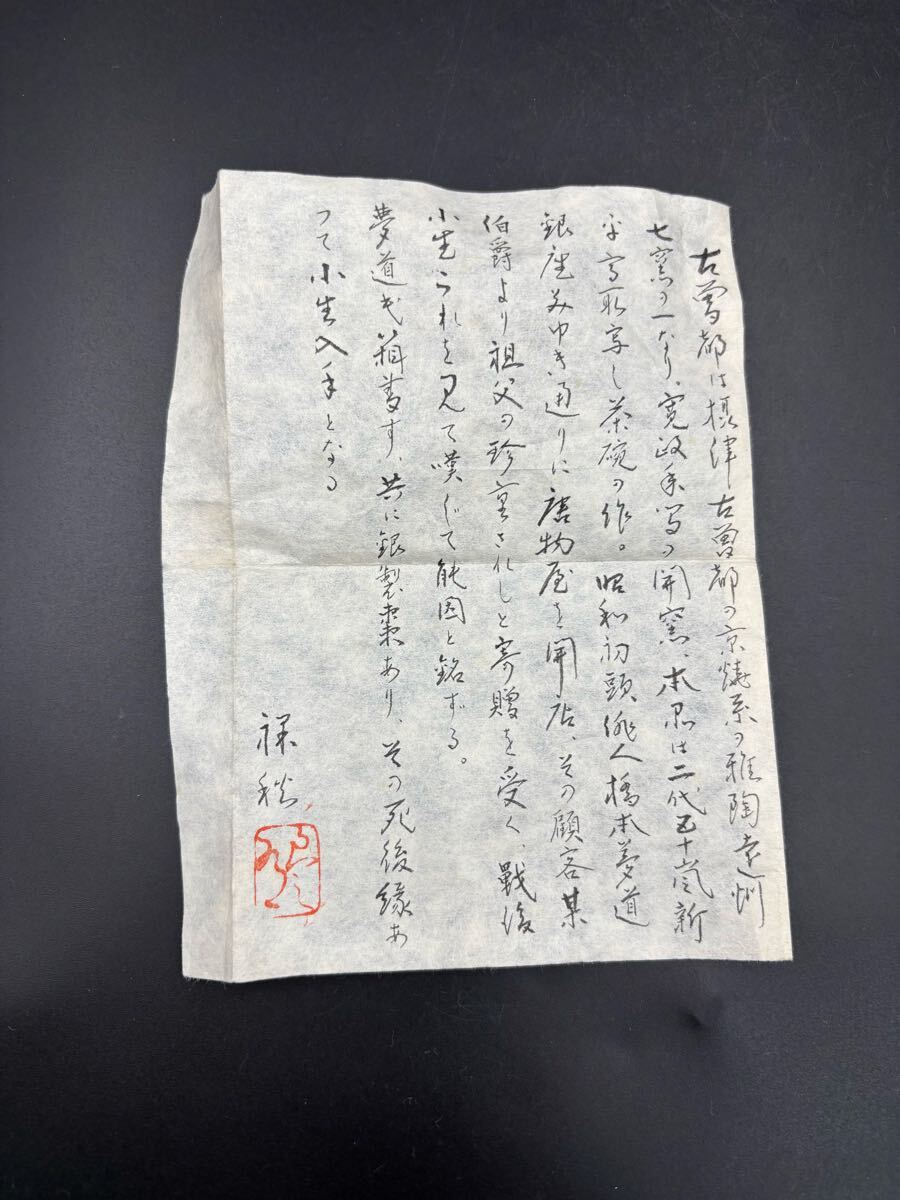 古曽部は摂津古曽部の京焼系の雅陶遠州
七窯の一なり、寛政年間の開窯、本品は二代五十嵐新
平高取写し茶碗の作。昭和初頭俳人橋本夢道
銀座みゆき通りに唐物屋を開店、その顧客某
伯爵より祖父の珍重されしと寄贈を受く、戦後
小生これを見て嘆じて能因と銘ずる。
夢道氏箱書す、共に銀製棗あり、その死後縁あ
つて小生入手となる
禄